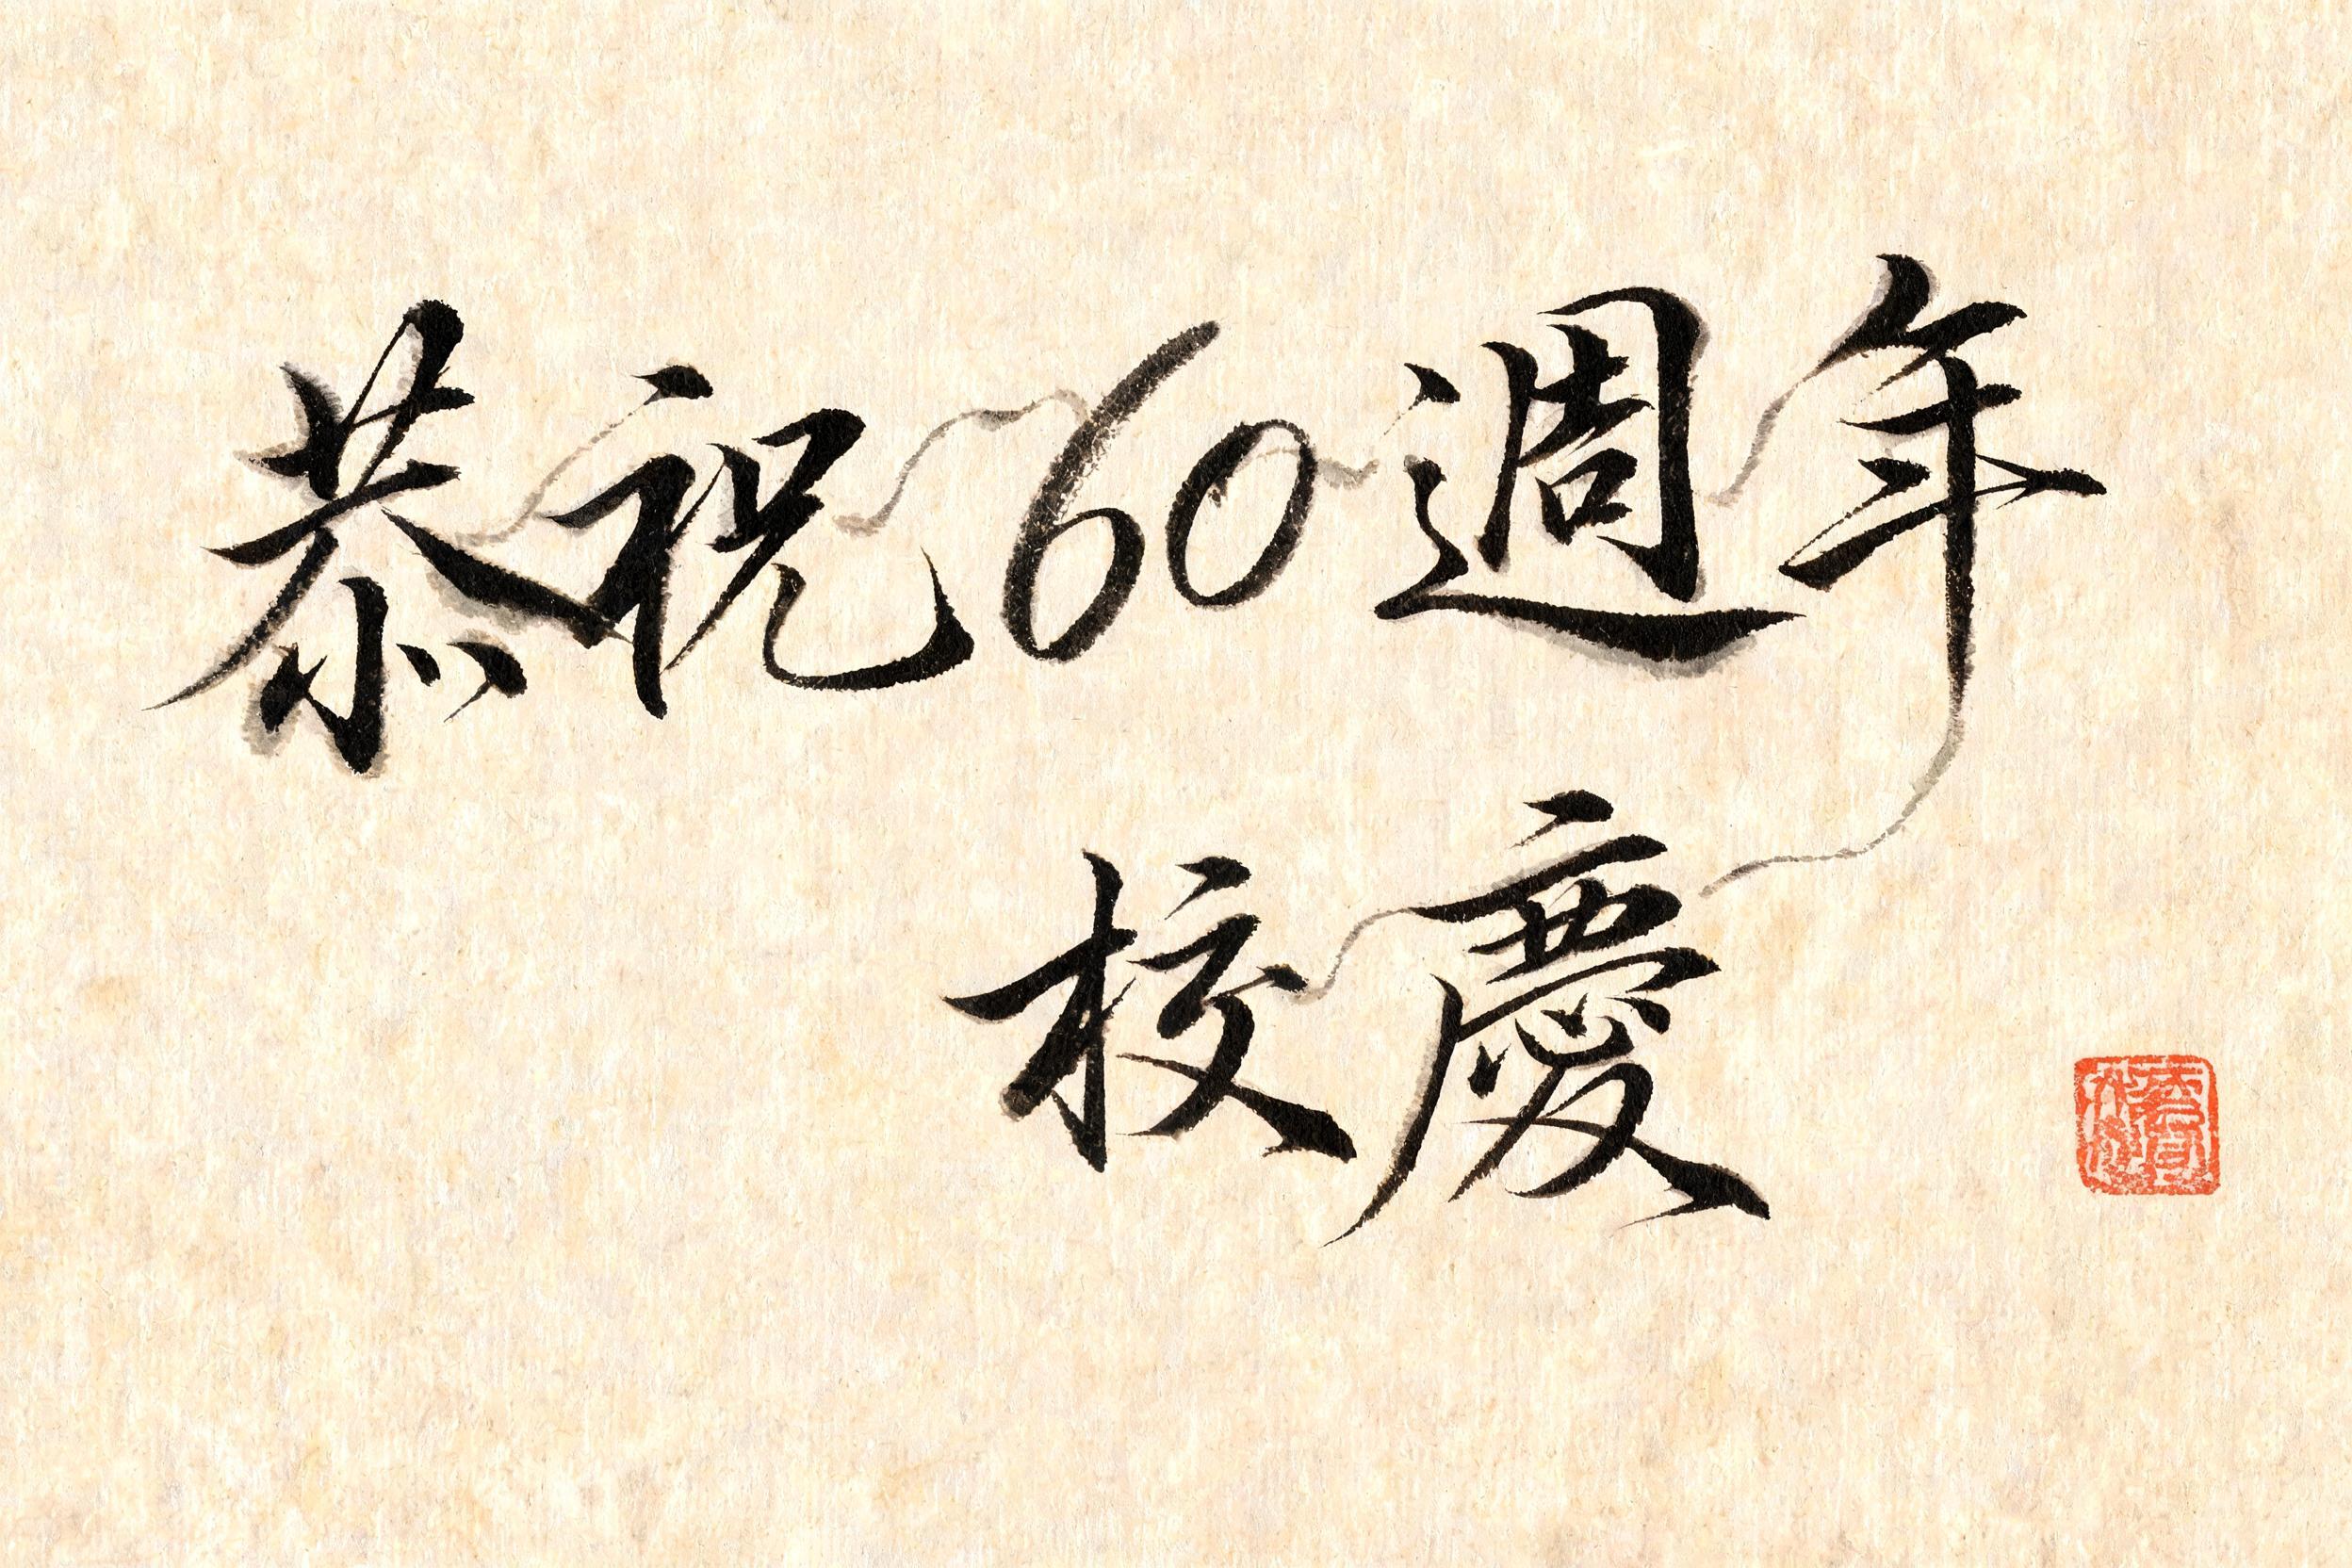 恭祝60週年
校慶